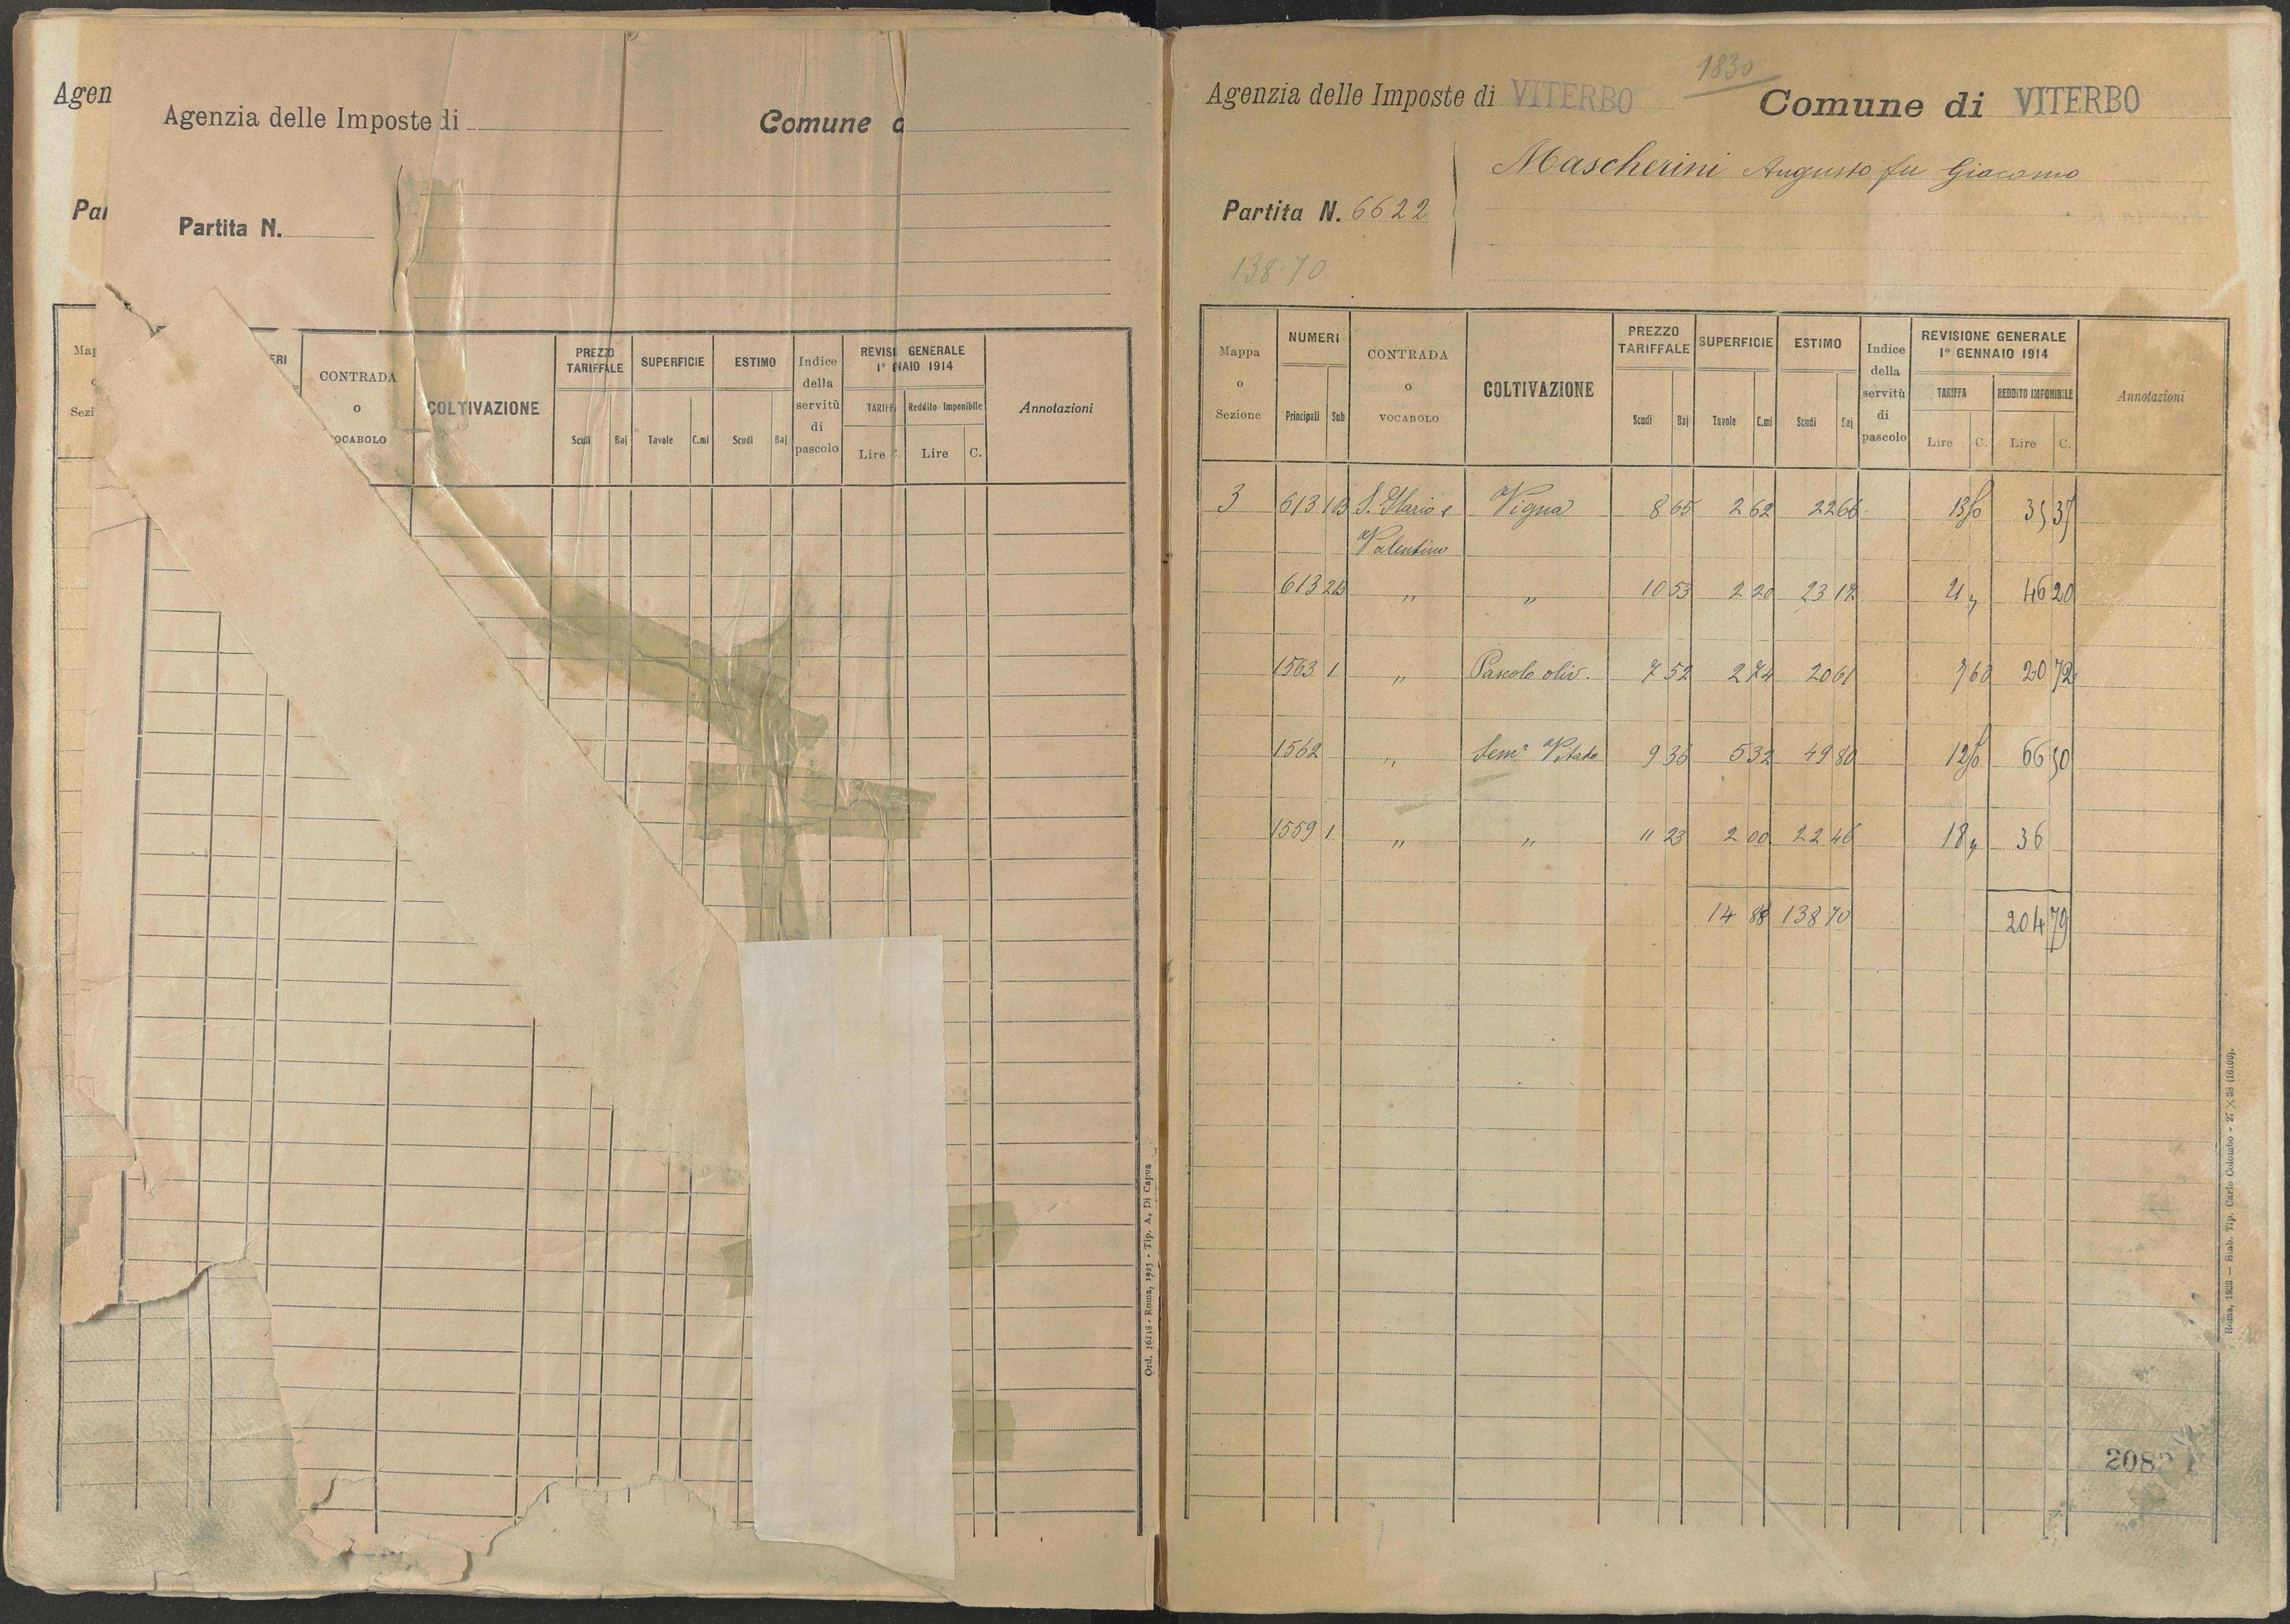 Agen
Agenzia delle Imposte di
Comune d
Par
Partita N.
Map
Sezi
ERI
CONTRADA
o
VOCABOLO
COLTIVAZIONE
PREZZO TARIFFALE
Scudi Baj
SUPERFICIE
Tavole C.mi
ESTIMO
Scudi Baj
Indice
della
servitù
di
pascolo
REVISI GENERALE
1° NAIO 1914
TARIFF Reddito Imponibile
Lire C. Lire C.
Annotazioni
Ord. 16218 - Roma, 1923 - Tip. A, Di Capua
1830
Agenzia delle Imposte di VITERBO
Comune di VITERBO
Mascherini Augusto fu Giacomo
Partita N. 6622
138.70
Mappa
o
Sezione
NUMERI
Principali Sub
CONTRADA
o
VOCABOLO
COLTIVAZIONE
PREZZO
TARIFFALE
Scudi Baj
SUPERFICIE
Tavole C.mi
ESTIMO
Scudi Baj
Indice
della
servitù
di
pascolo
REVISIONE GENERALE
1° GENNAIO 1914
TARIFFA REDDITO IMPONIBILE
Lire C. Lire C.
Annotazioni
3 613 1B S. Ilario e Vigna 8 65 2 62 22 66 13 50 35 37
Valentino
613 2B " " 10 53 2 20 23 17 21 " 46 20
1563 1 " Pascolo oliv. 7 52 2 74 20 61 7 60 20 72
1562 " Sem.e Vitato 9 36 5 32 49 80 12 50 66 50
1559 1 " " 11 23 2 00 22 46 18 " 36
14 88 138 70 204 79
Roma, 1923 — Stab. Tip. Carlo Colombo - 27 X 38